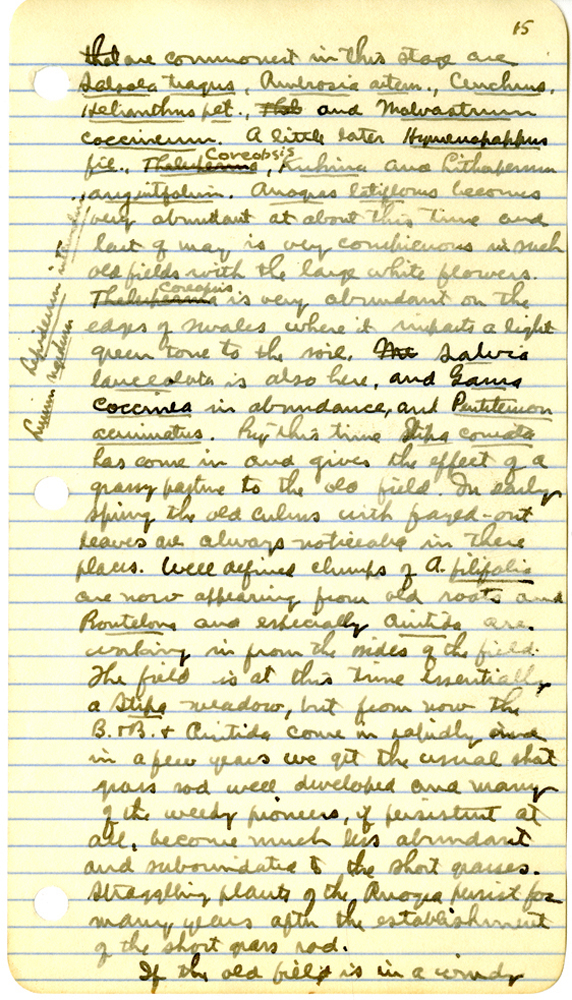 15
that are commonest in this stage are
Salsola tragus, Ambrosia artem., Cenchrus,
Helianthus pet., and Malvastrum
coccineum. A little later Hymenopappus
fil., Thelesperma Coreopsis, Kuhnia and Lithosperm
angustifolium. Anogra latiflora becomes
very abundant at about this time and
last of may is very conspicuous in such
old fields with the large white flowers.
Thelesperma Coreopsis is very abundant on the
edges of swales where it imparts a light
green tone to the soil. Salvia
lanceolata is also here, and Gaura
coccinea in abundance, and Pentstemon
acuminatus. By this time Stipa comata
has come in and gives the effect of a
grassy pasture to the old field. In early
spring the old culms with frayed-out
leaves are always noticeable in these
places. Well defined clumps of A. filifolia
are now appearing from old roots and
Bouteloua and especially Aristida are
working in from the sides of the field.
The field is at this time essentially
a Stipa meadow, but from now the
B. + B. + Aristida come in rapidly and
in a few years we get the usual short
grass sod well developed and many
of the weedy pioneers, if persistent at
all, become much less abundant
and subordinated to the short grasses.
Straggling plants of the Anogra persist for
many years after the establishment
of the short grass sod.
If the old field is in a windy
Lepidium
Linum rigidum